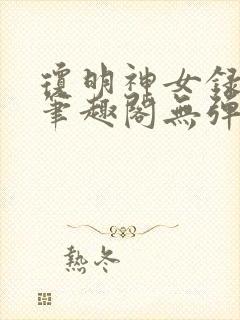 瓊明神女錄
筆趣閣無彈
熱冬